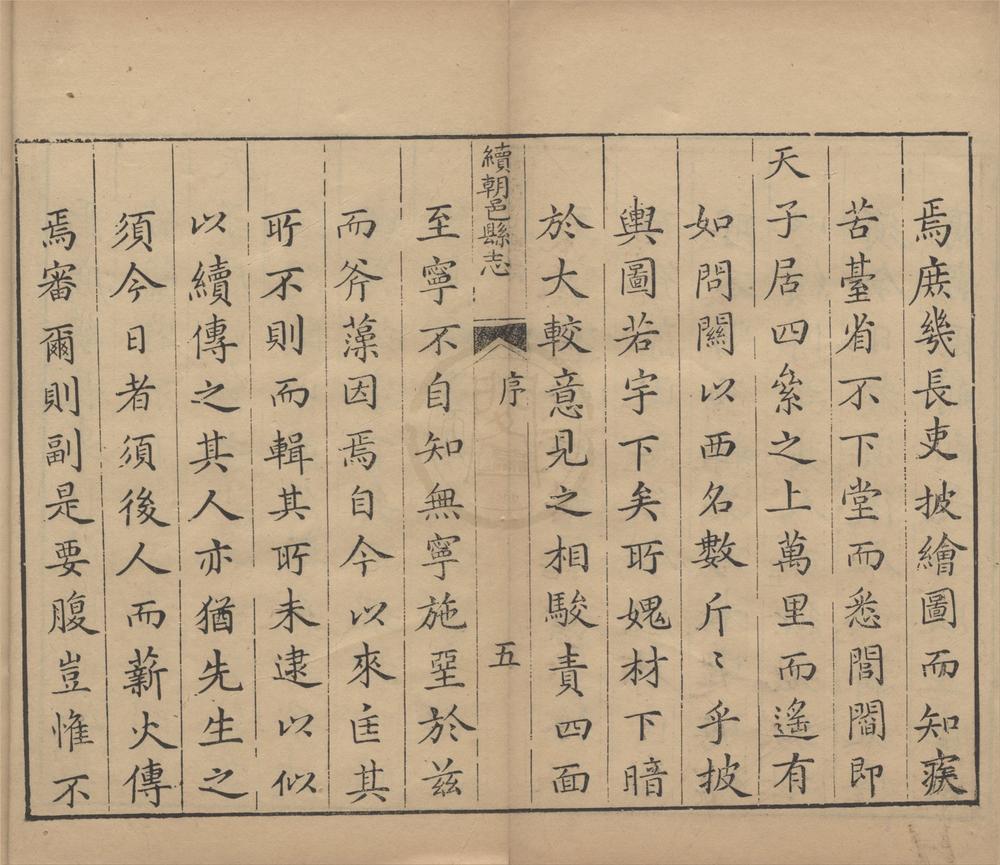 焉庶幾長吏披繪圖而知瘼
苦臺省不下堂而悉閭閻即
天子居四縈之上萬里而遙有
如問關以西名數斤〻乎披
輿圖若宇下矣所媿材下暗
於大較意見之相駿責四面
續朝邑縣志
序
五
至寧不自知無寧施堊於茲
而斧藻因焉自今以來匡其
所不則而輯其所未逮以似
以續傳之其人亦猶先生之
須今日者須後人而薪火傳
焉審爾則副是要腹豈惟不